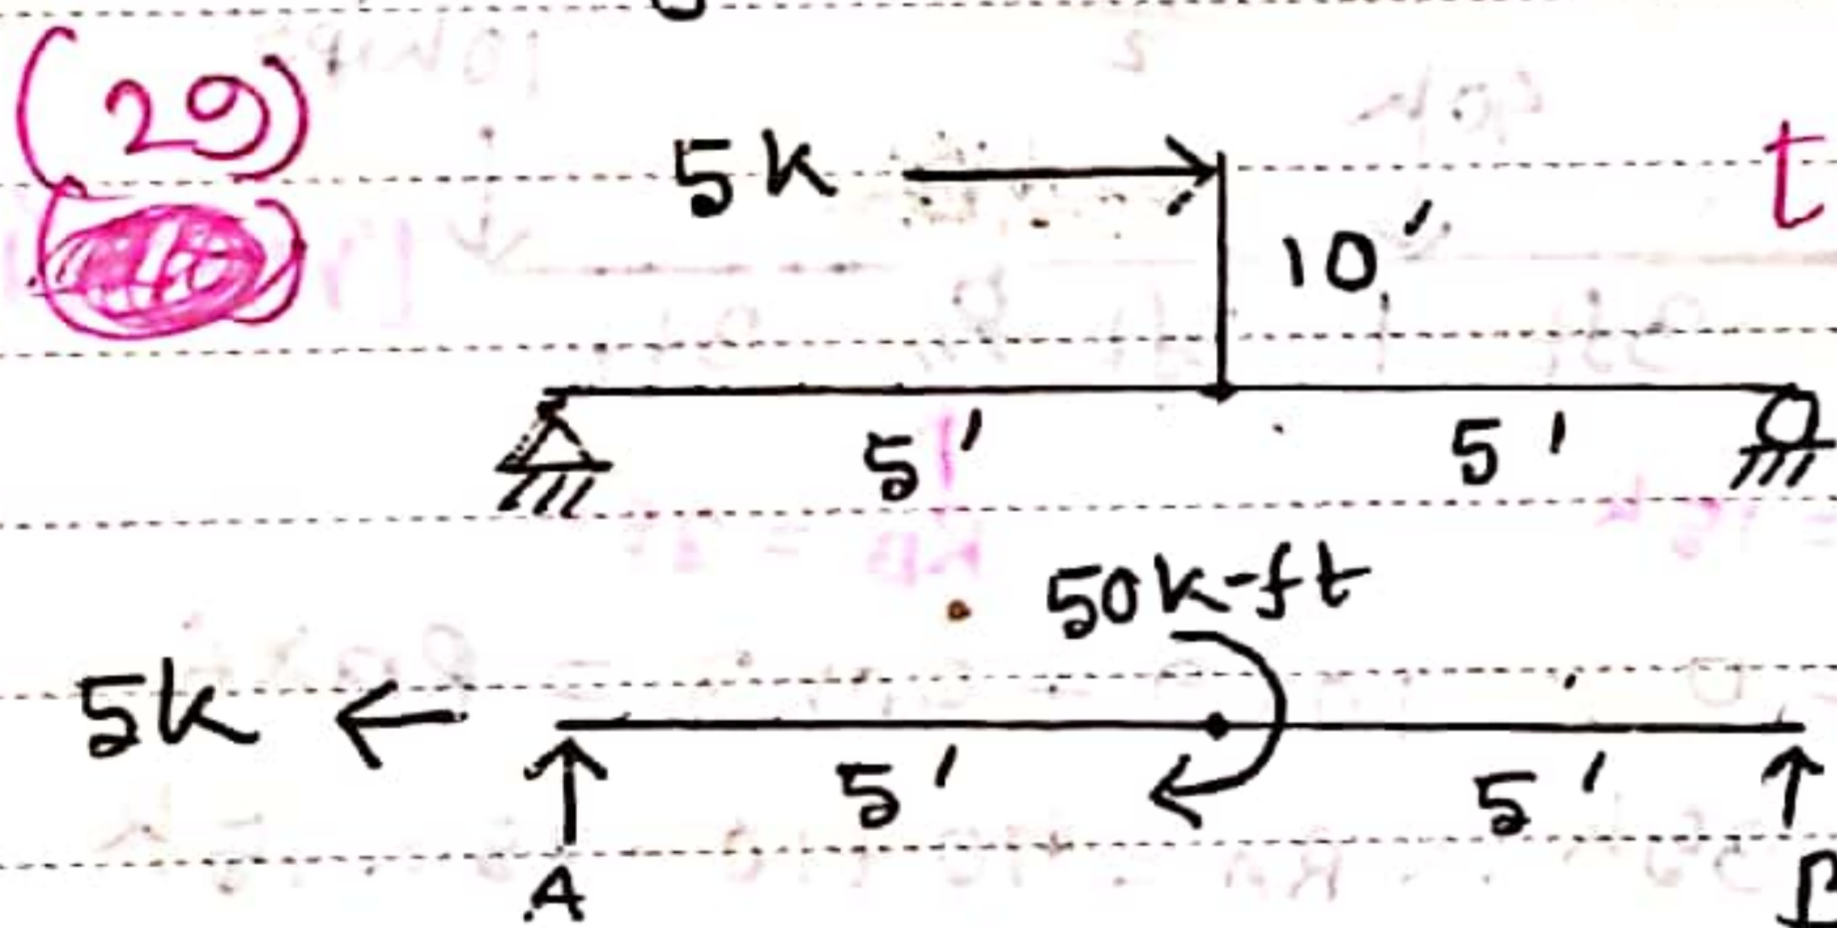 (29)
5k
t
10'
5'
5'
50k-ft
5k
5'
5'
A
B